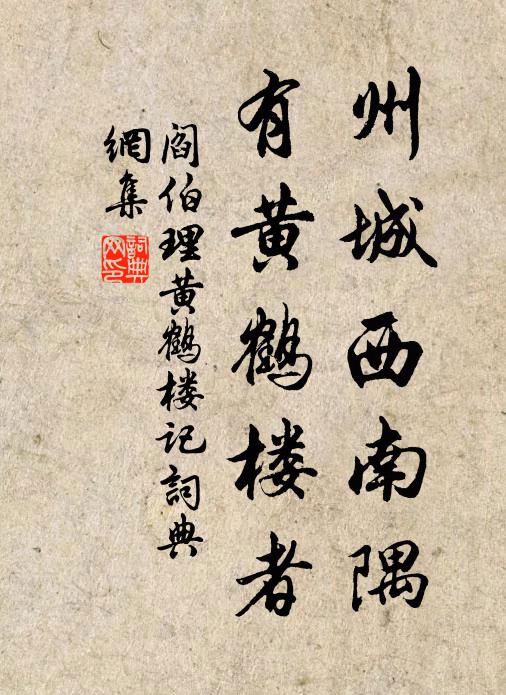 州城西南隅
有黄鹤楼者
阎伯理黄鹤楼记詞典
網集
詞典
网印